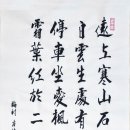 遠上寒山石
白雲生處有
停車坐愛楓
霜葉紅於二